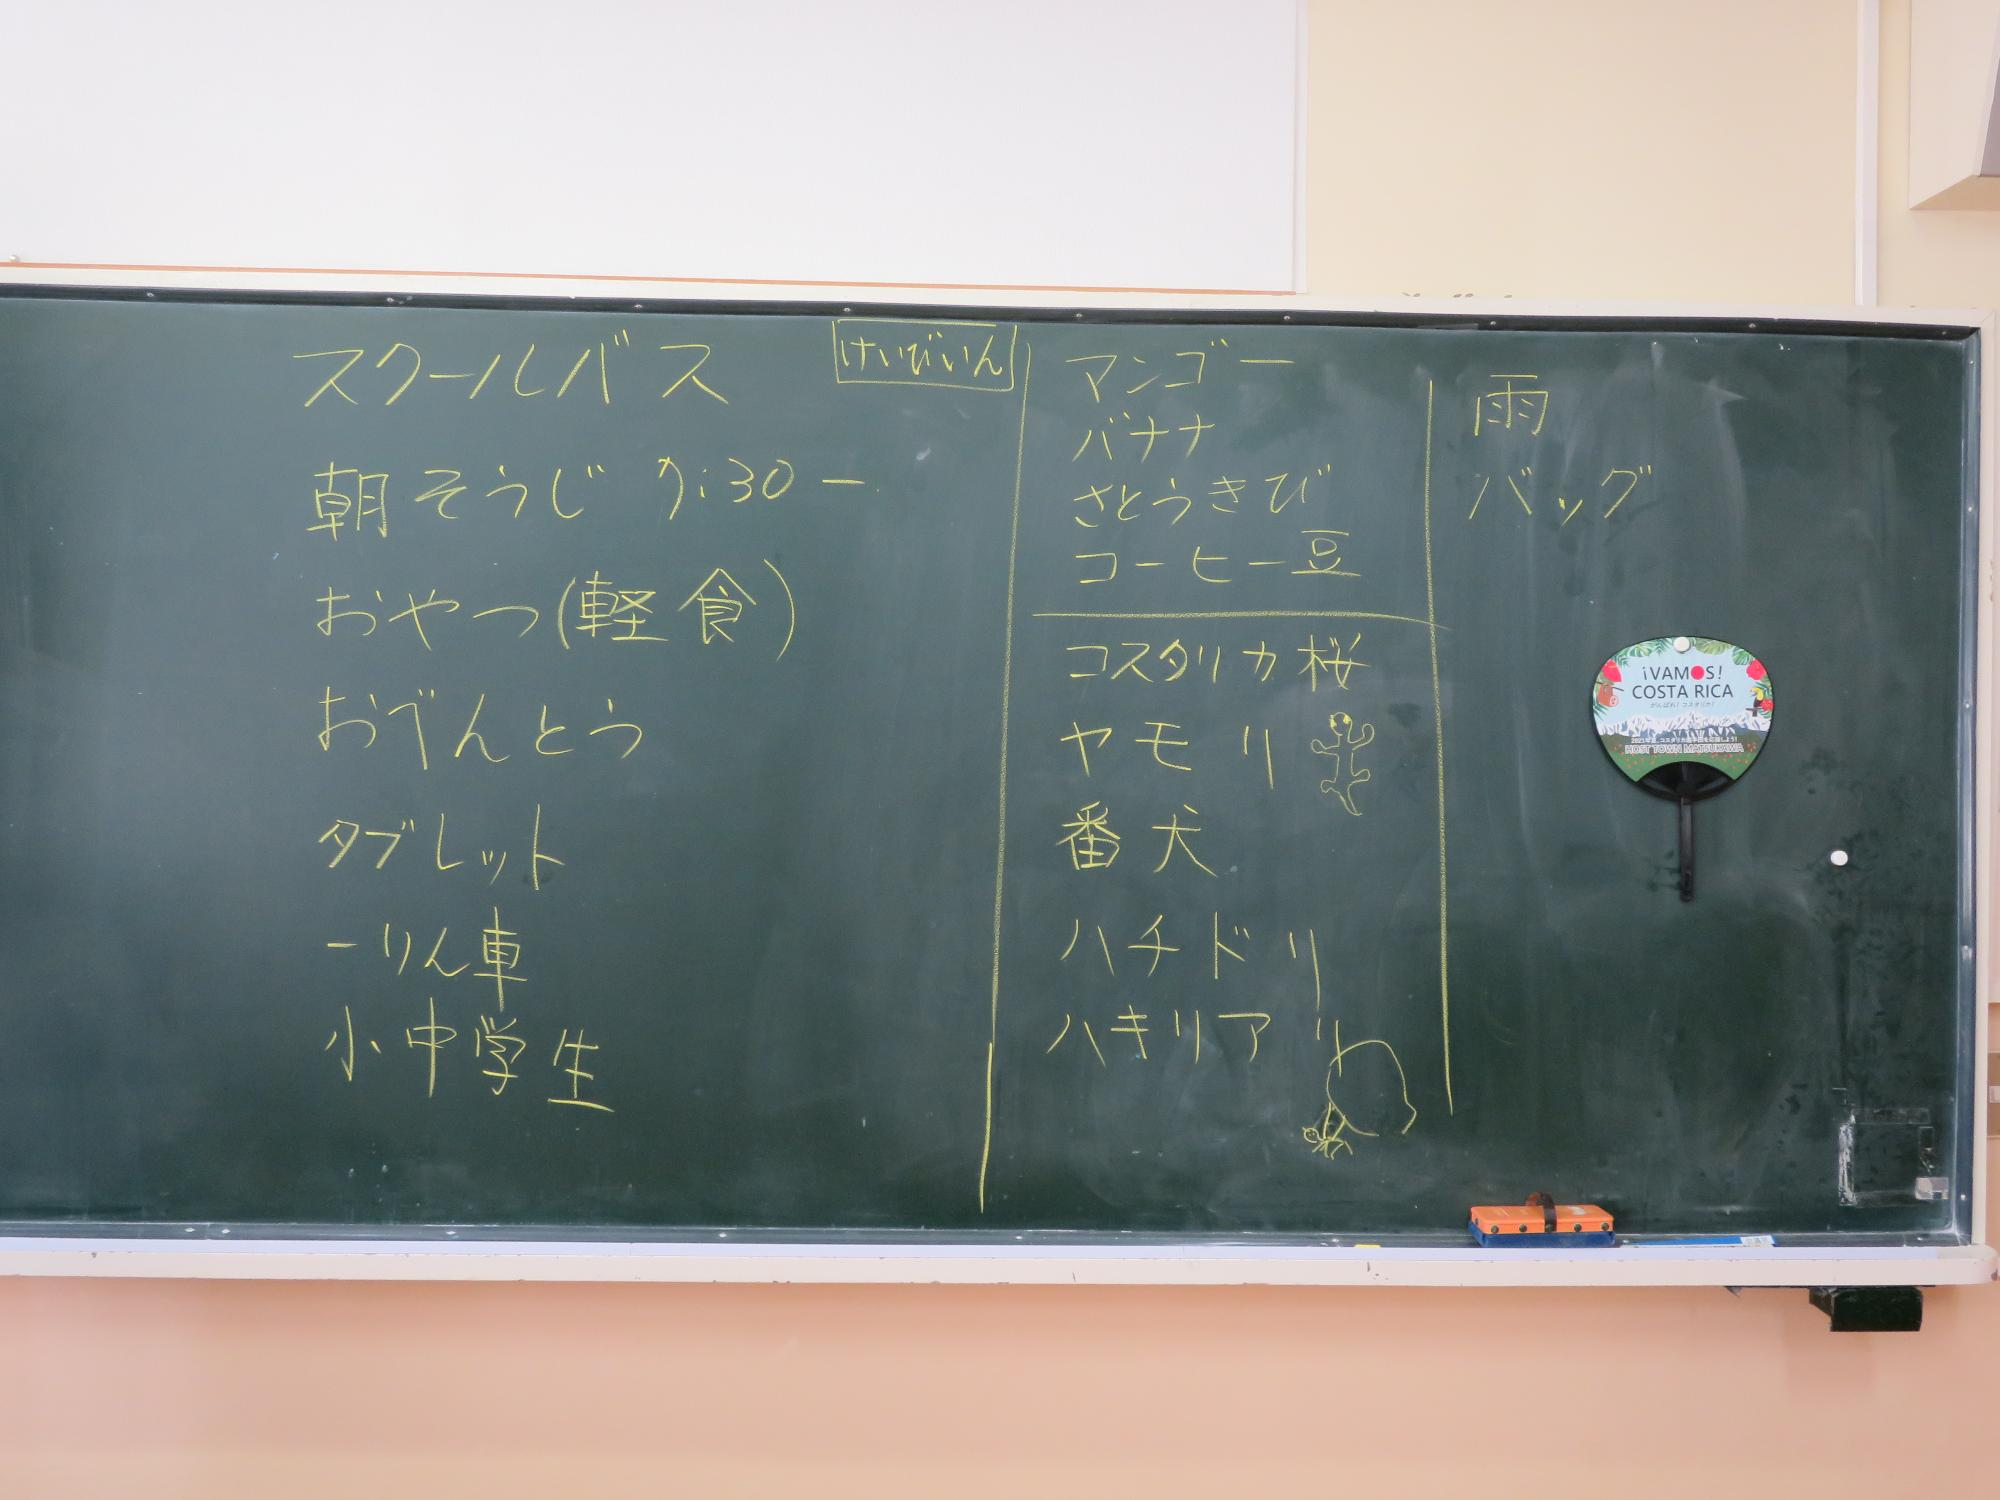 スクールバス
けいびいん
朝そうじ 7:30ー
おやつ(軽食)
おべんとう
タブレット
一りん車
小中学生
マンゴー
バナナ
さとうきび
コーヒー豆
コスタリカ桜
ヤモリ
番犬
ハチドリ
ハキリアリ
雨
バッグ
¡VAMOS!
COSTA RICA
がんばれ!コスタリカ!
2021年夏、コスタリカ選手団を応援しよう!
HOST TOWN MATSUKAWA